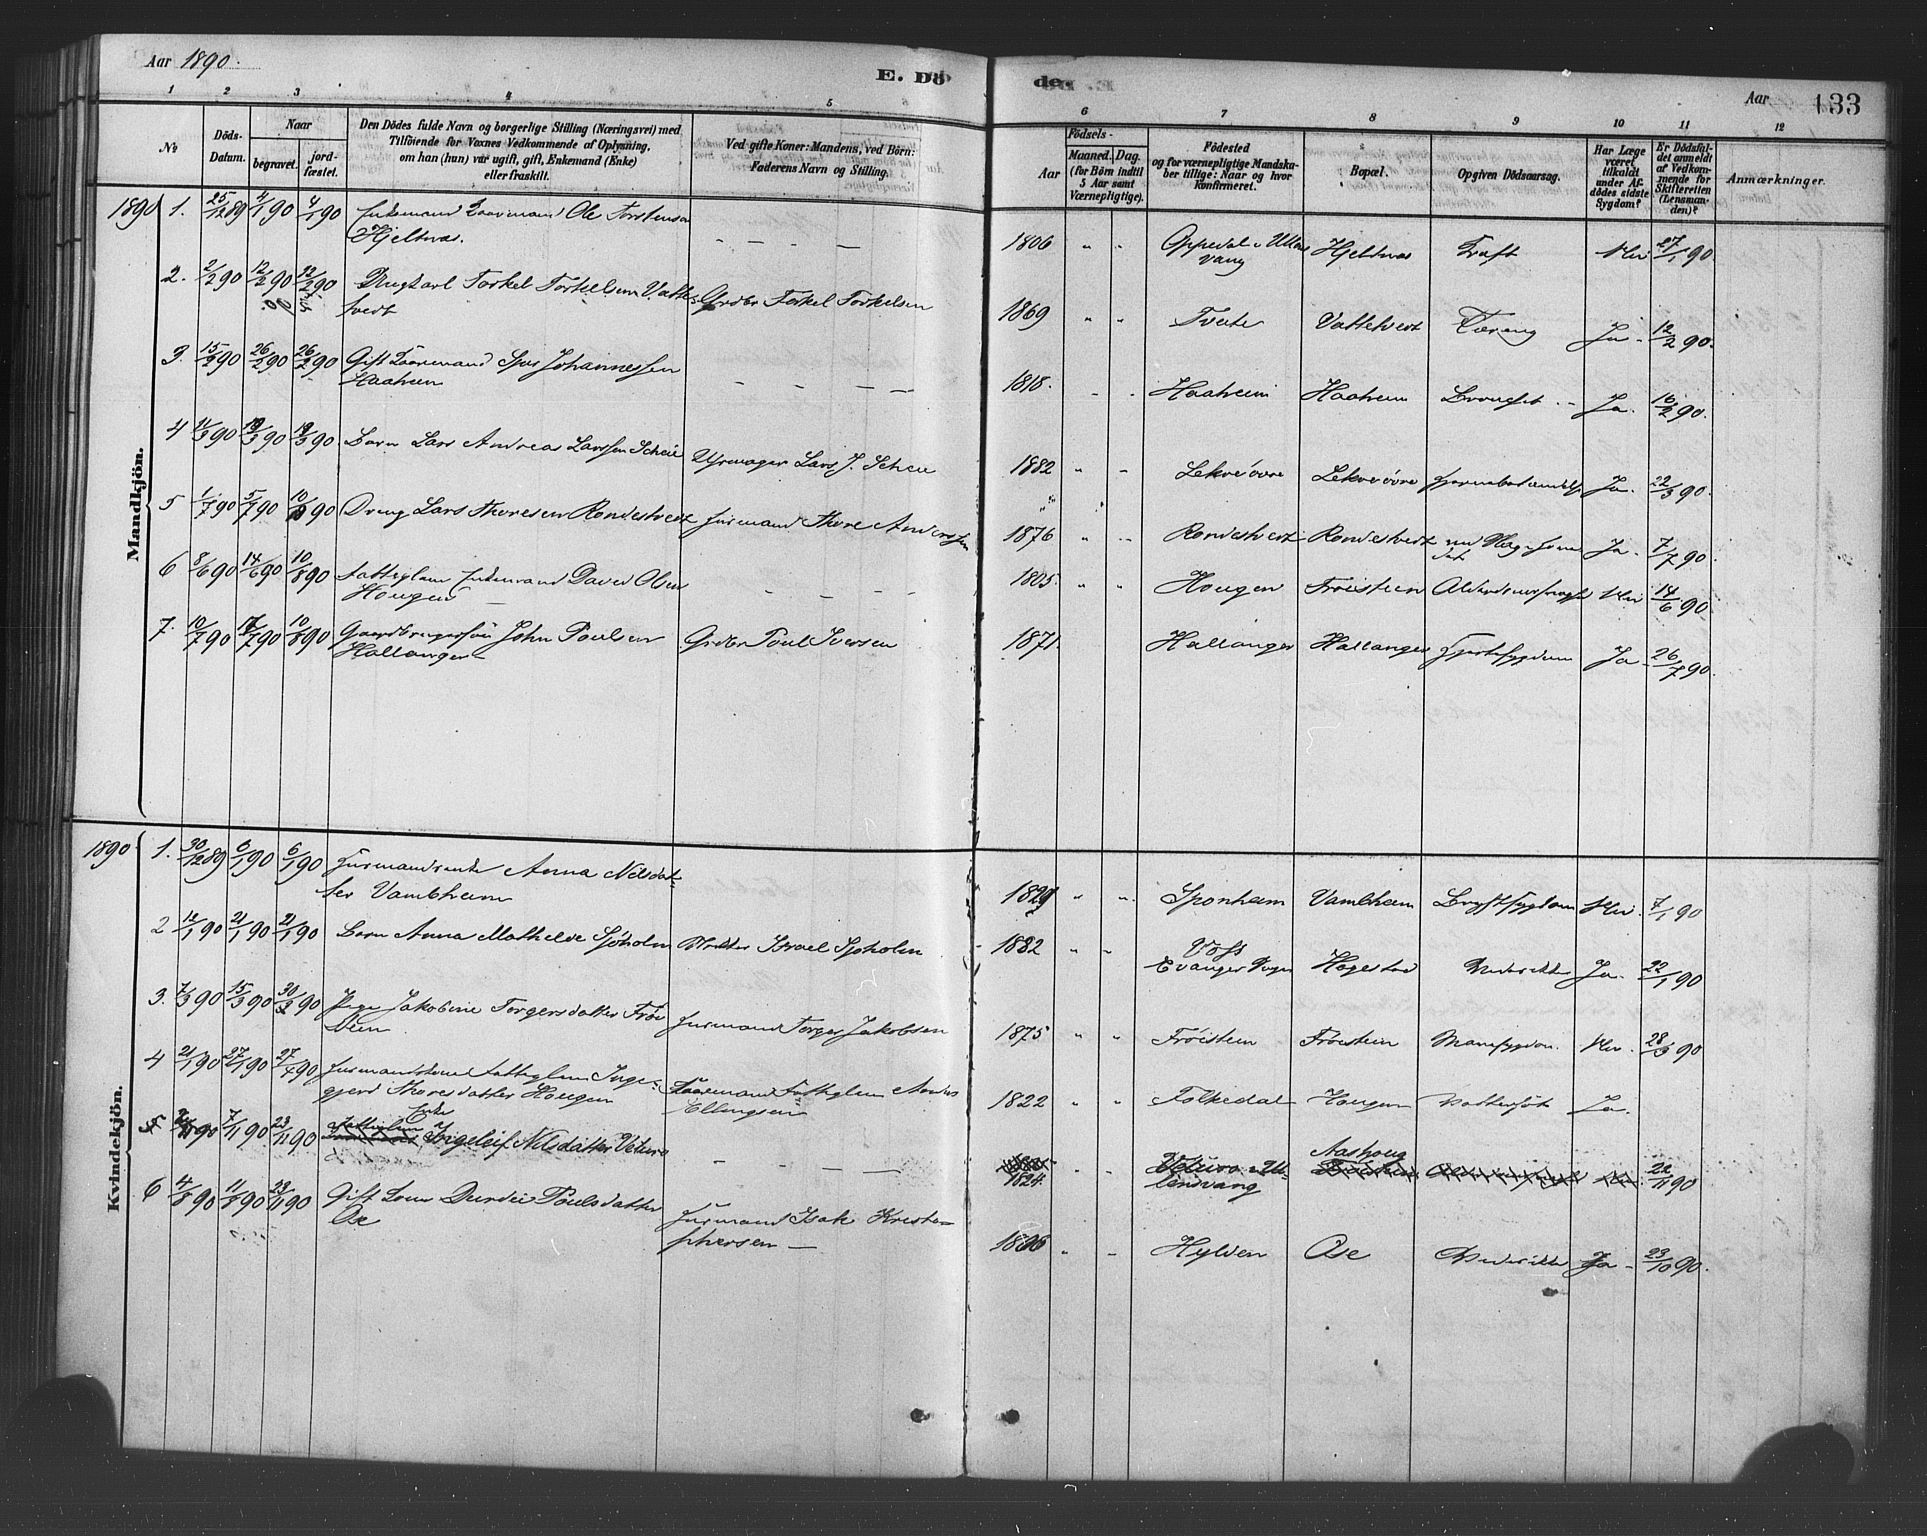 Aar 1890.
E. Dö
de
Aar
133
1 2 3 4 5 6 7 8 9 10 11 12
№
Döds-
Datum.
Naar
begravet.
jord-
fæstet.
Den Dödes fulde Navn og borgerlige Stilling (Næringsvei) med
Tilföiende for Voxnes Vedkommende af Oplysning,
om han (hun) var ugift, gift, Enkemand (Enke)
eller fraskilt.
Ved gifte Koner: Mandens, ved Börn:
Faderens Navn og Stilling.
Födsels-
Aar
Maaned. Dag.
(for Börn indtil
5 Aar samt
Værnepligtige).
Födested
og for værnepligtige Mandska-
ber tillige: Naar og hvor
konfirmeret.
Bopæl.
Opgiven Dödsaarsag.
Har Læge
været
tilkaldt
under Af-
dödes sidste
Sygdom?
Er Dödsfal-
det anmeldt
af Vedkom-
mende for
Skifteretten
(Lensman-
den)?
Anmærkninger.
Mandkjön.
1890 1. 25/12 89 4/1 90 4/1 90 Enkemand Kaarmand Ole Torstensen
Hjeltnæs. 1806 " " Oppedal i Ullens
vang Hjeltnæs Kræft Nei 27/1 90.
2. 2/2 90 12/2 90 12/2 90 Ungkarl Torkel Torkelsen Vatle-
tvedt Grdbr Torkel Torkelsen 1869 " " Tveite Vatletvedt Tæring Ja. 12/2 90.
3. 15/2 90 26/2 90 26/2 90 Gift Kaarmand Sjur Johannessen
Haaheim 1818. Haaheim Haaheim Ja. 16/2 90.
4 11/3 90 19/3 90 19/3 90 Barn Lars Andreas Larssen Scheie Uhrmager Lars J. Scheie 1882 " " Lekve øvre Lekve øvre Ja. 22/3 90.
5 1/7 90 5/7 90 10/8 90 Dreng Lars Thoresen Rondestvedt Husmand Thore Anderssen 1876 " " Rondestvedt Rondestvedt Ja 7/7 90
6 8/6 90 14/6 90 10/8 90 Fattiglem Enkemand David Olsen
Hougen 1805. " " Hougen Frøistein Alderdomssvaghed Nei 14/6 90
7. 10/7 90 17/7 90 10/8 90 Gaardbrugersøn John Poulsen
Hallanger Grdbr Poul Iversen 1871. Hallanger Hallanger Hjertesygdom Ja 26/7 90.
Kvindekjön.
1890 1. 30/12 89 6/1 90 6/1 90 Husmandsenke Anna Nilsdat-
ter Vambheim 1829 " " Sponheim Vambheim Brystsygdom Nei. 7/1 90
2 12/1 90 21/1 90 21/1 90 Barn Anna Mathilde Sjøholm Israel Sjøholm 1882 " " Voss
Evanger Sogn Hagestad Ja. 22/1 90
3. 7/3 90 15/3 90 30/3 90 Pige Jakobine Torgersdatter Frøi
stein Husmand Torger Jakobsen 1875 " " Frøistein Frøistein Mavesygdom. Nei. 28/3 90
4 21/1 90 27/1 90 27/4 90 Husmandskone Fattiglem Inge-
gjerd Thoresdatter Hougen Kaarmand Fattiglem Anders
Ellingsen 1822 " " Folkedal Hougen Vattersot Ja.
5 7/11 90 23/11 90 Fattiglem Enke Ingeleif Nilsdatter Veturo 1824. " " Veturo i Ul-
lensvang Aashoug 22/11 90
6 4/8 90 11/8 90 23/11 90 Gift Kone Durdei Poulsdatter
Ose Husmand Isak Kristo-
phersen 1806 " " Hylden Ose Ja 23/10 90.